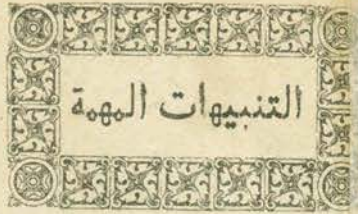 التنبيهات المهمة